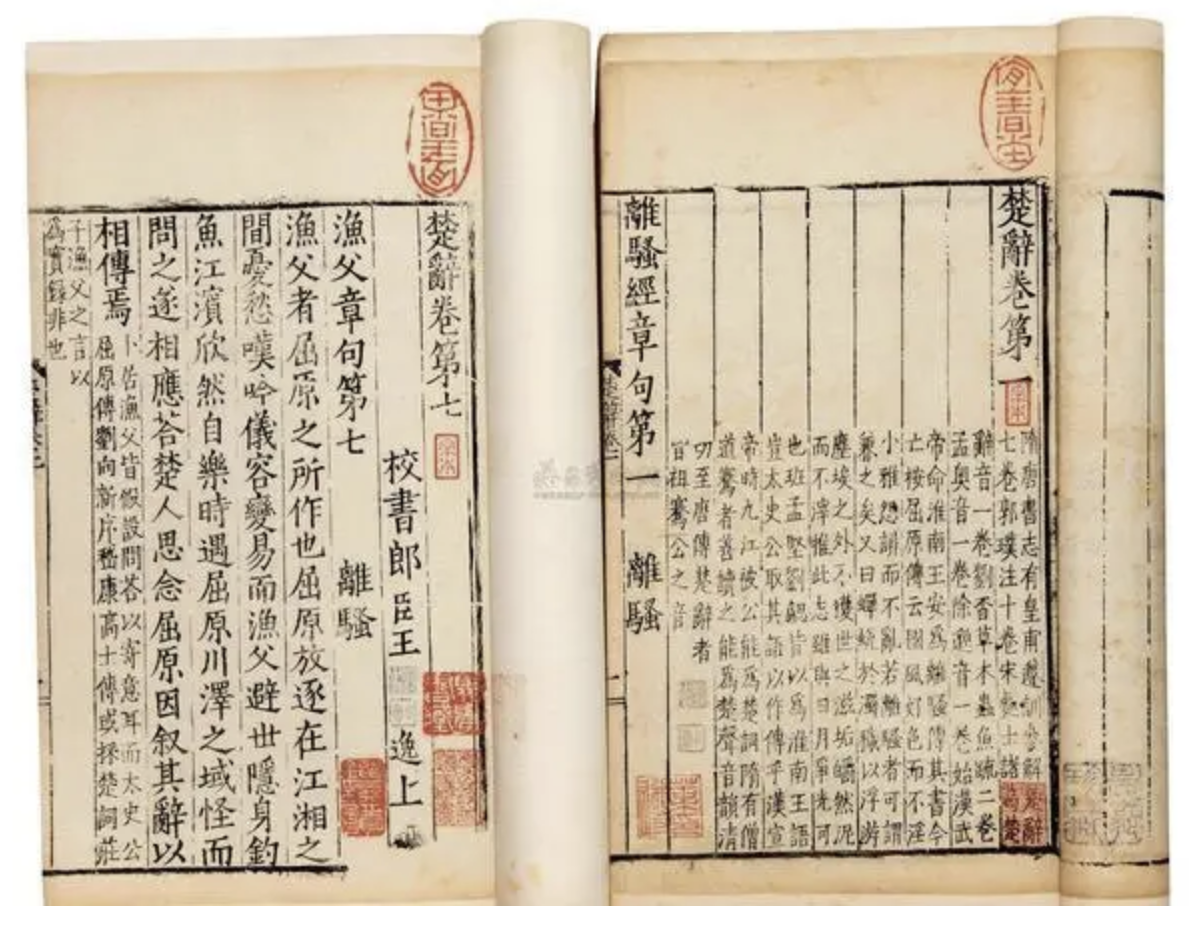 楚辭卷第一
隋唐書志有皇甫遵訓參解楚辭
七卷郭璞注十卷宋處士諸葛楚
辭音一卷劉杳草木蟲魚疏二卷
孟奧音一卷徐邈音一卷始漢武
帝命淮南王安爲離騷傳其書今
亡按屈原傳云國風好色而不淫
小雅怨誹而不亂若離騷者可謂
兼之矣又曰蟬蛻於濁穢以浮游
塵埃之外不獲世之滋垢皭然泥
而不滓推此志雖與日月爭光可
也班孟堅劉勰皆以爲淮南王語
豈太史公取其語以作傳乎漢宣
帝時九江被公能爲楚詞隋有僧
道騫者善讀之能爲楚聲音韻清
切至唐傳楚辭者
皆祖騫公之音
離騷經章句第一 離騷
楚辭卷第七
校書郎臣王 逸上
漁父章句第七 離騷
漁父者屈原之所作也屈原放逐在江湘之
間憂愁嘆吟儀容變易而漁父避世隱身釣
魚江濱欣然自樂時遇屈原川澤之域怪而
問之遂相應荅楚人思念屈原因叙其辭以
相傳焉
卜居漁父皆假設問荅以寄意耳而太史公
屈原傳劉向新序嵇康高士傳或採楚詞莊
子漁父之言以
爲實録非也